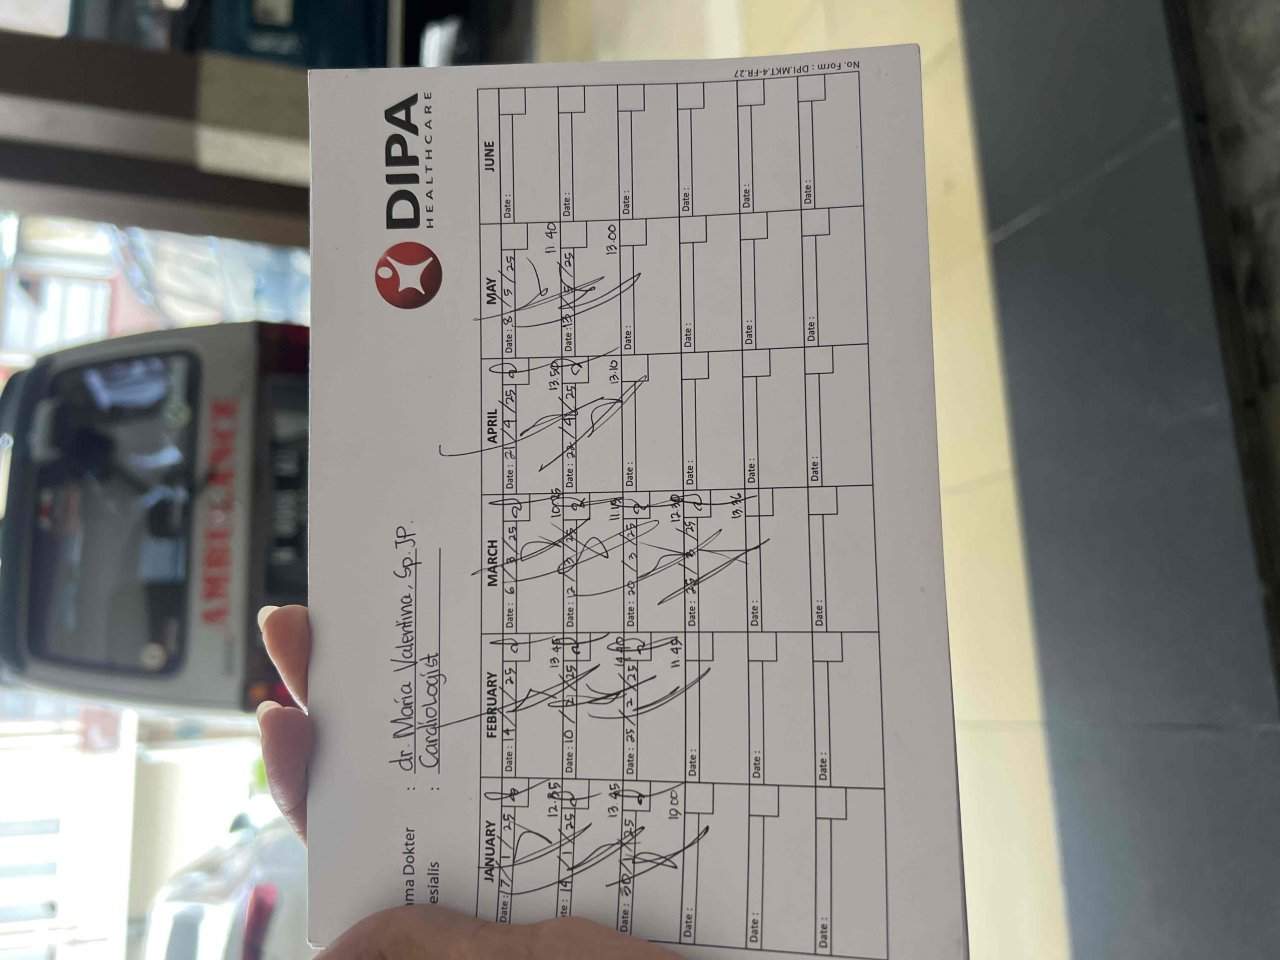 DIPA
HEALTHCARE
ama Dokter : dr. Maria Valentina, Sp.JP.
esialis : Cardiologist
JANUARY FEBRUARY MARCH APRIL MAY JUNE
Date: 7/1/25 Date: 14/ /25 Date: 6/3/25 Date: 21/4/25 Date: 8/5/25 Date:
12.35 13.45 13.50 11.40
te: 14/1/25 Date: 10/2/25 Date: 12/3/25 Date: 22/4/25 Date: 13/5/25 Date:
13.45 11.15 13.10 13.00
Date: 30/1/25 Date: 25/2/25 Date: 20/3/25 Date: Date: Date:
10.00 11.45
Date: Date: Date: 25/3/25 Date: Date: Date:
13.36
Date: Date: Date: Date: Date: Date:
Date: Date: Date: Date: Date: Date:
No. Form : DPI.MKT.4-FR.27
AMBULANCE